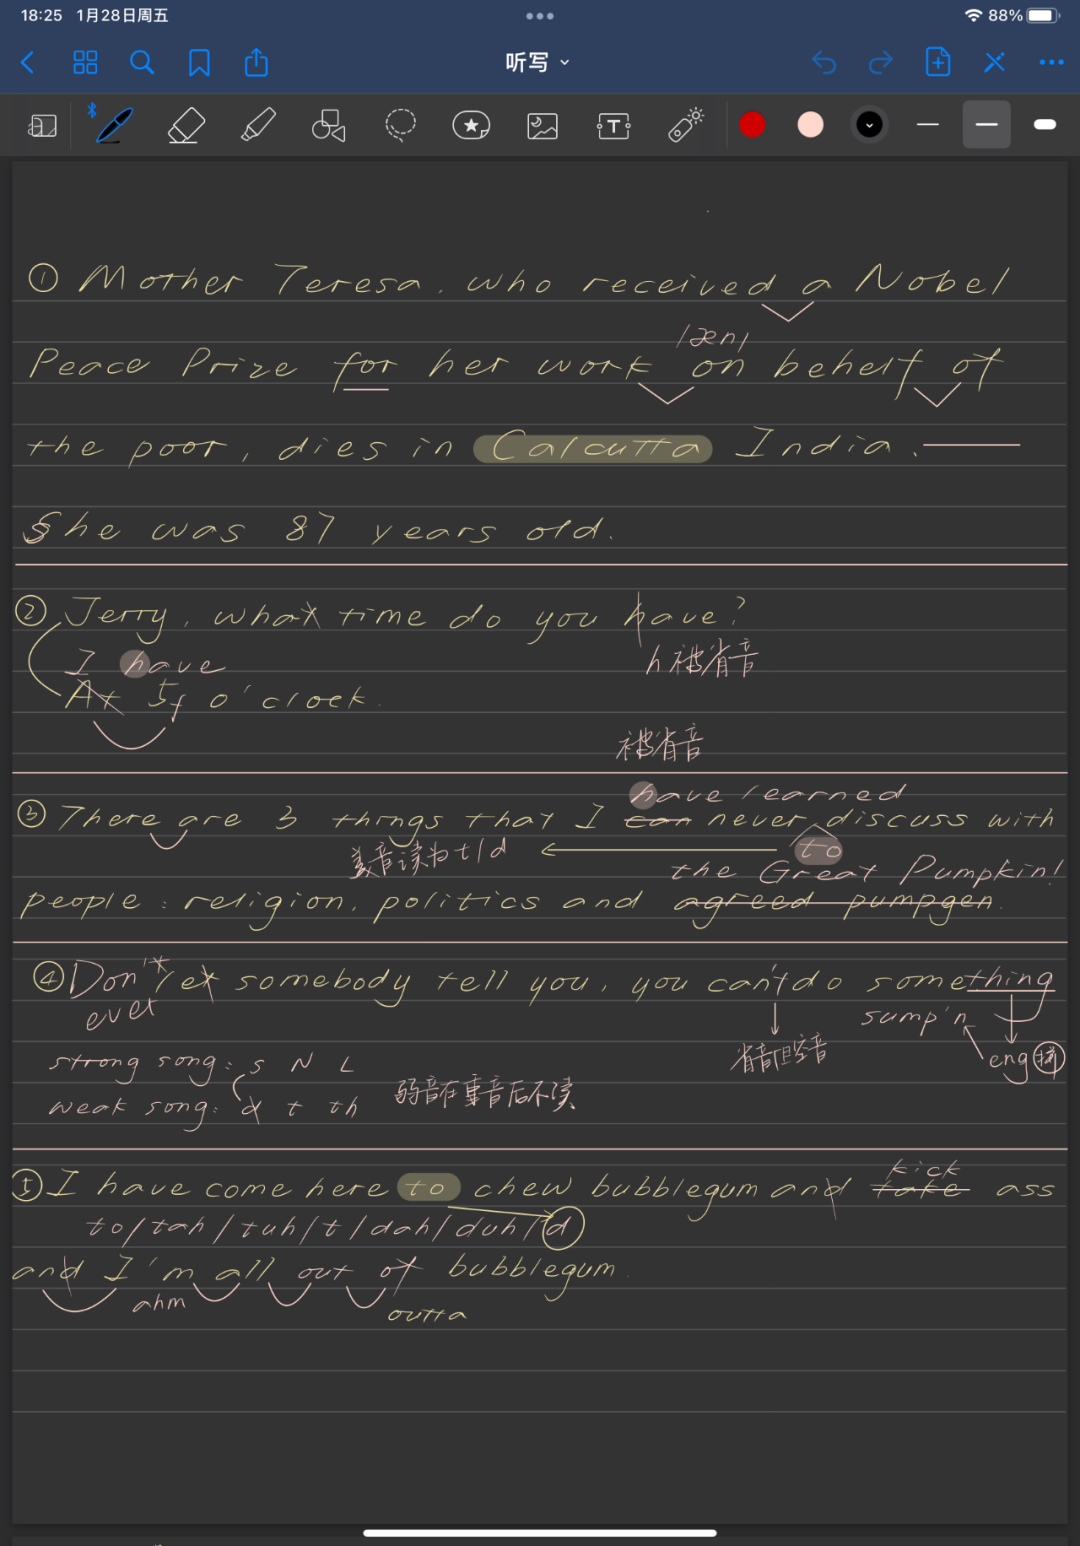 18:25 1月28日周五
88%
听写
① Mother Teresa, who received a Nobel
/æn/
Peace Prize for her work on behelf of
the poor, dies in Calcutta India.
She was 87 years old.
② Jerry, what time do you have?
I have
h被省音
At 5 o'clock.
被省音
have learned
③ There are 3 things that I can never discuss with
美音读为t/d
to
the Great Pumpkin!
people: religion, politics and agreed pumpgen.
④ Don't let somebody tell you, you can't do something
ever
sump'n
省音
eng
strong song: s N L
weak song: d t th
弱音在重音后不读
kick
⑤ I have come here to chew bubblegum and take ass
to/tah/tuh/t/dah/duh/d
and I'm all out of bubblegum.
ahm
outta